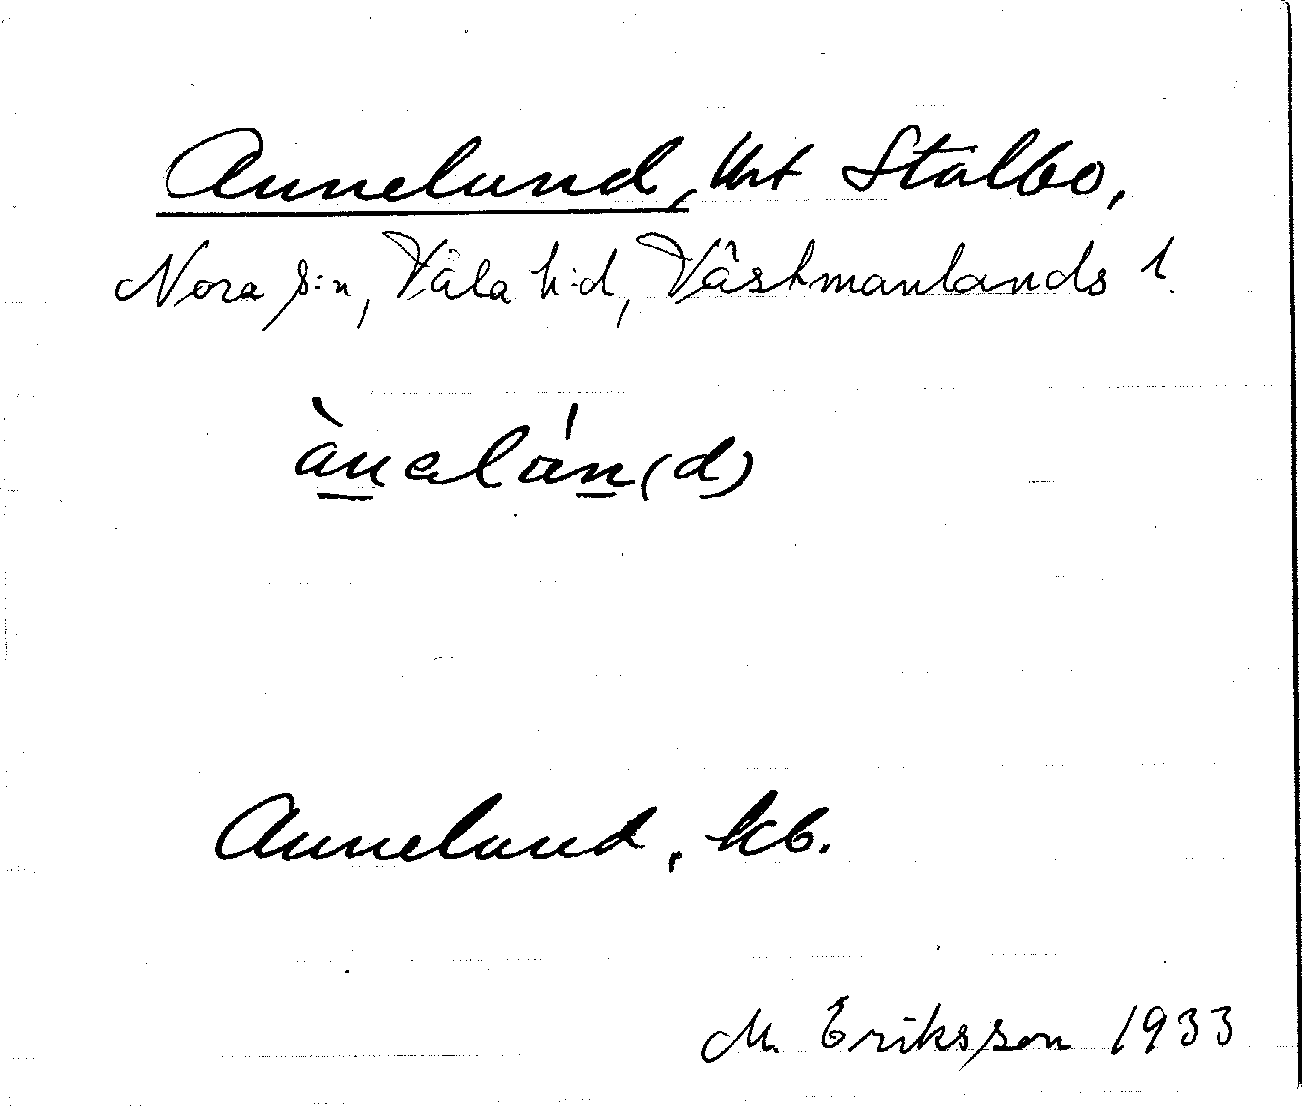 Annelund, Unt Stalbo,
Nora s:n, Våla h:d, Västmanlands l.
ànelán(d)
Annelund, kb.
M. Eriksson 1933